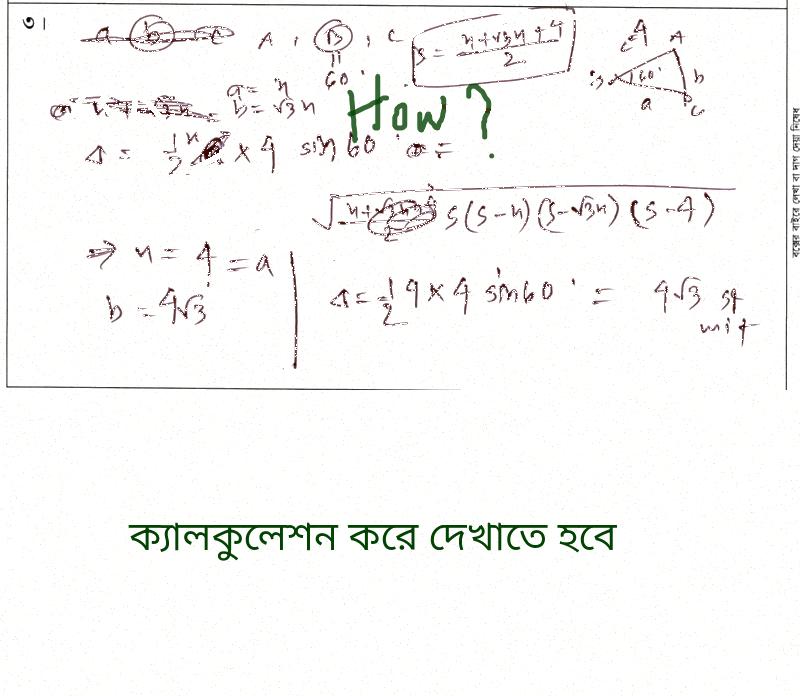 ৩।
A, B, C
60°
S = x+√3x+4 / 2
c=4 A
B 60° b
a C
a = x
b = √3x
How?
Δ = 1/2 x × 4 sin 60° =
√ s(s-x)(s-√3x)(s-4)
⇒ x = 4 = a
b = 4√3
Δ = 1/2 4 × 4 sin 60° = 4√3 sq
unit
বক্সের বাইরে লেখা বা দাগ দেয়া নিষেধ
ক্যালকুলেশন করে দেখাতে হবে